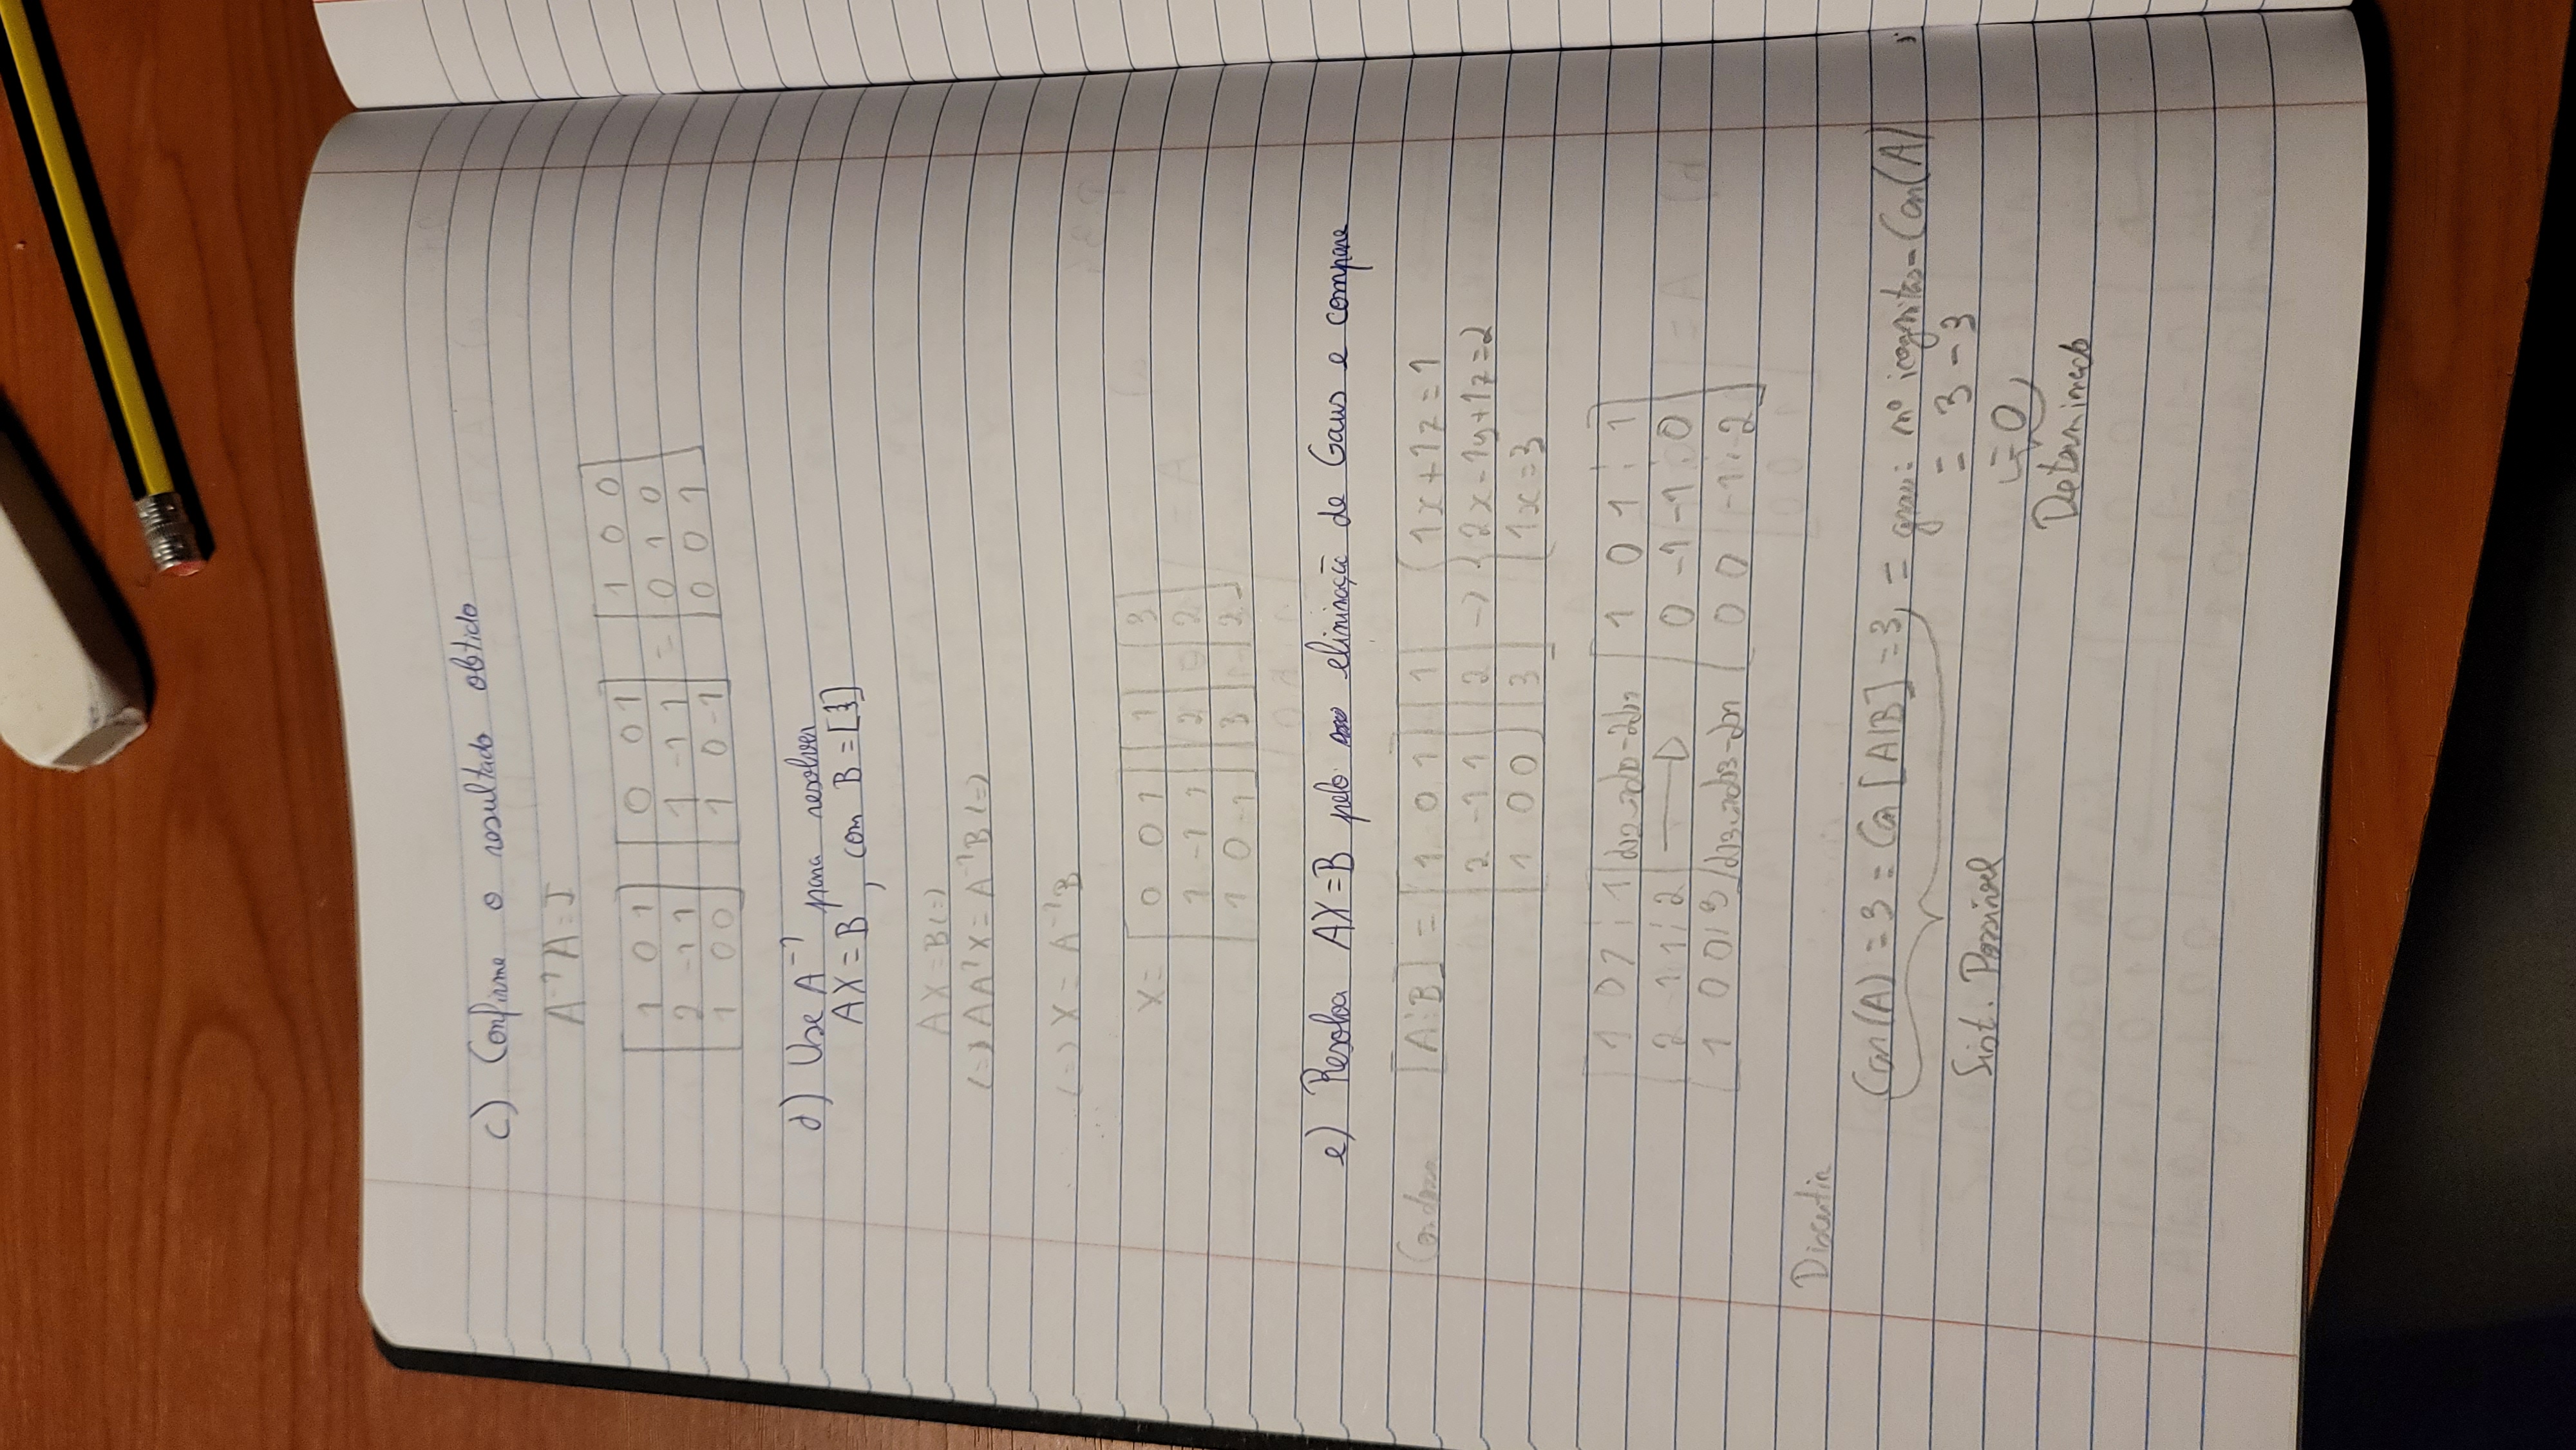 c) Confirme o resultado obtido
A⁻¹A = I
[1 0 1] [0 0 1] [1 0 0]
[2 -1 1] [1 -1 1] = [0 1 0]
[1 0 0] [1 0 -1] [0 0 1]
d) Use A⁻¹ para resolver
AX = B, com B = [
AX = B (=)
(=) AA⁻¹X = A⁻¹B (=)
(=) X = A⁻¹B
X = [0 0 1] [1] [3]
[1 -1 1] [2] = [2]
[1 0 -1] [3] [2]
e) Resolva AX = B pelo eliminação de Gaus e compare
[A¦B] = [1 0 1] [1] {1x + 1z = 1
[2 -1 1] [2] -> {2x - 1y + 1z = 2
[1 0 0] [3] {1x = 3
[1 0 1 ¦ 1] [1 0 1 ¦ 1]
[2 -1 1 ¦ 2] → [0 -1 -1 ¦ 0]
[1 0 0 ¦ 3] [0 0 -1 ¦ 2]
Discutir
Car(A) = 3 = Ca [A|B] = 3, = grau: nº icognitas - Car(A)
= 3 - 3
Sist. Possível
= 0
Determinado